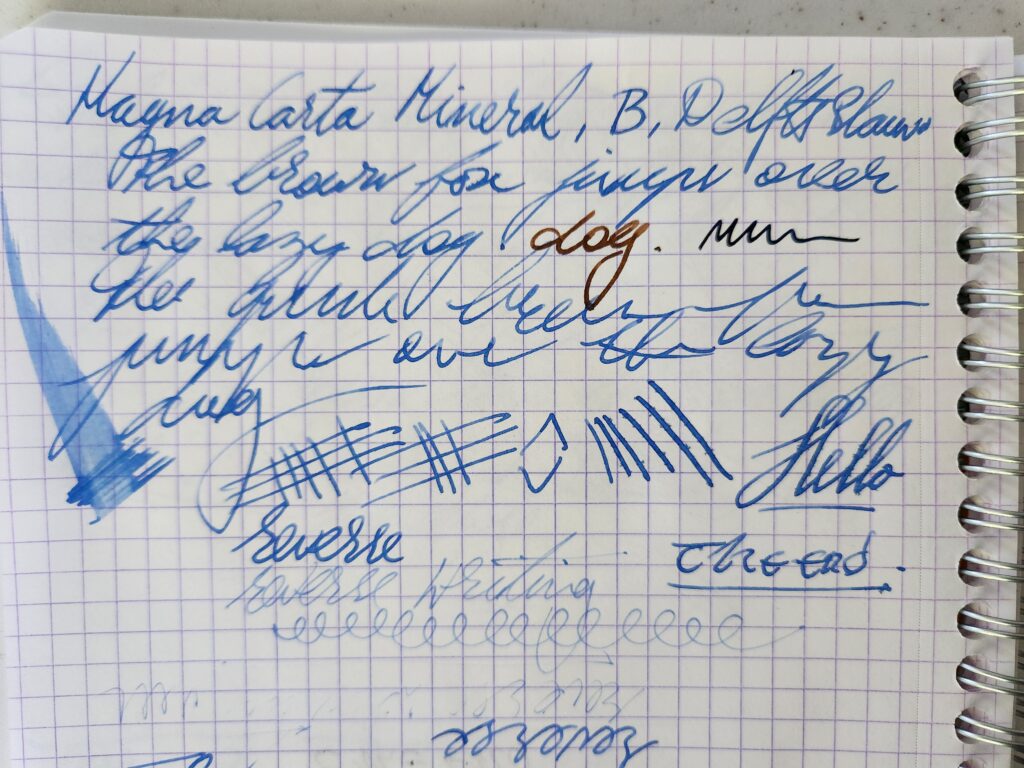 Magna Carta Mineral, B, Delft Blauw
The brown fox jumps over
the lazy dog. dog.
the quick brown fox
jumps over the lazy
dog
Hello
Reverse
Reverse Writing
The end.